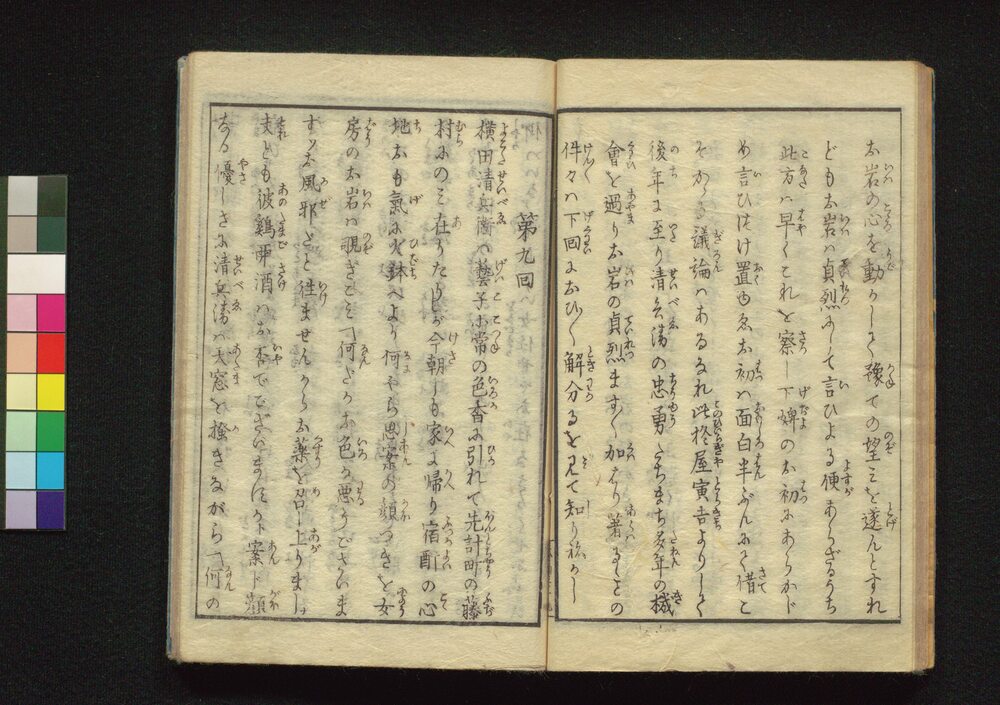 お岩の心を動かしなく豫ての望ミを遂んとすれ
ども お岩ハ貞烈にして言ひよる便あらざるうち
此方ハ早くこれを察し下婢のお初にあらかじ
め言ひつけ置ゆゑお初ハ面白半ぶんに 借こ
そかゝる議論ハあるなれ此柊屋寅吉よりしく
後年に至り清兵衛の忠勇たちまち 年の機
會を過りお岩の貞烈ますく加はり著しきの
件々ハ下回におひく解分るを見て知り給かし
第九回
横田清兵衛ハ藝子小常の色香に引れて先計町の藤
村にのミ在りたりしが今朝しも家に帰り宿酊の心
地にも氣に火鉢へより何やら思案の顔つきを女
房のお岩ハ覗きこミ「何どかお色が悪うございま
すお風邪とで往ませんからお薬を召し上りまし
まとも彼鶏卵酒ハお否でございますかト案ド顔
なる優しさに清兵衛ハ天窓を掻きながら「何の